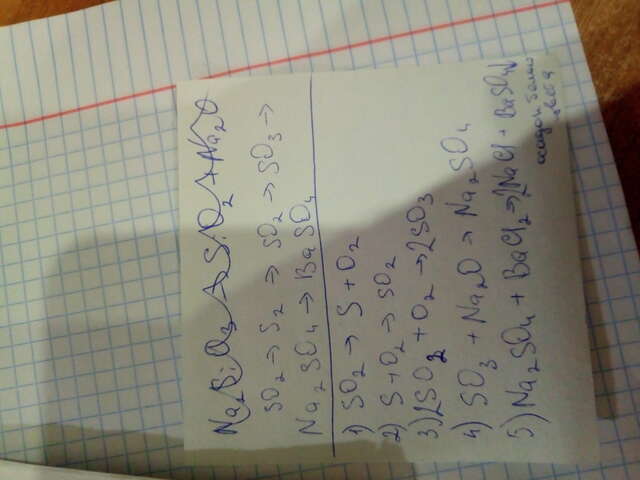 Na₂SiO₃ → SiO₂ + Na₂O
SO₂ → S₂ → SO₂ → SO₃ →
Na₂SO₄ → BaSO₄
1) SO₂ → S + O₂
2) S + O₂ → SO₂
3) 2SO₂ + O₂ → 2SO₃
4) SO₃ + Na₂O → Na₂SO₄
5) Na₂SO₄ + BaCl₂ → 2NaCl + BaSO₄↓
осадок белого
цвета